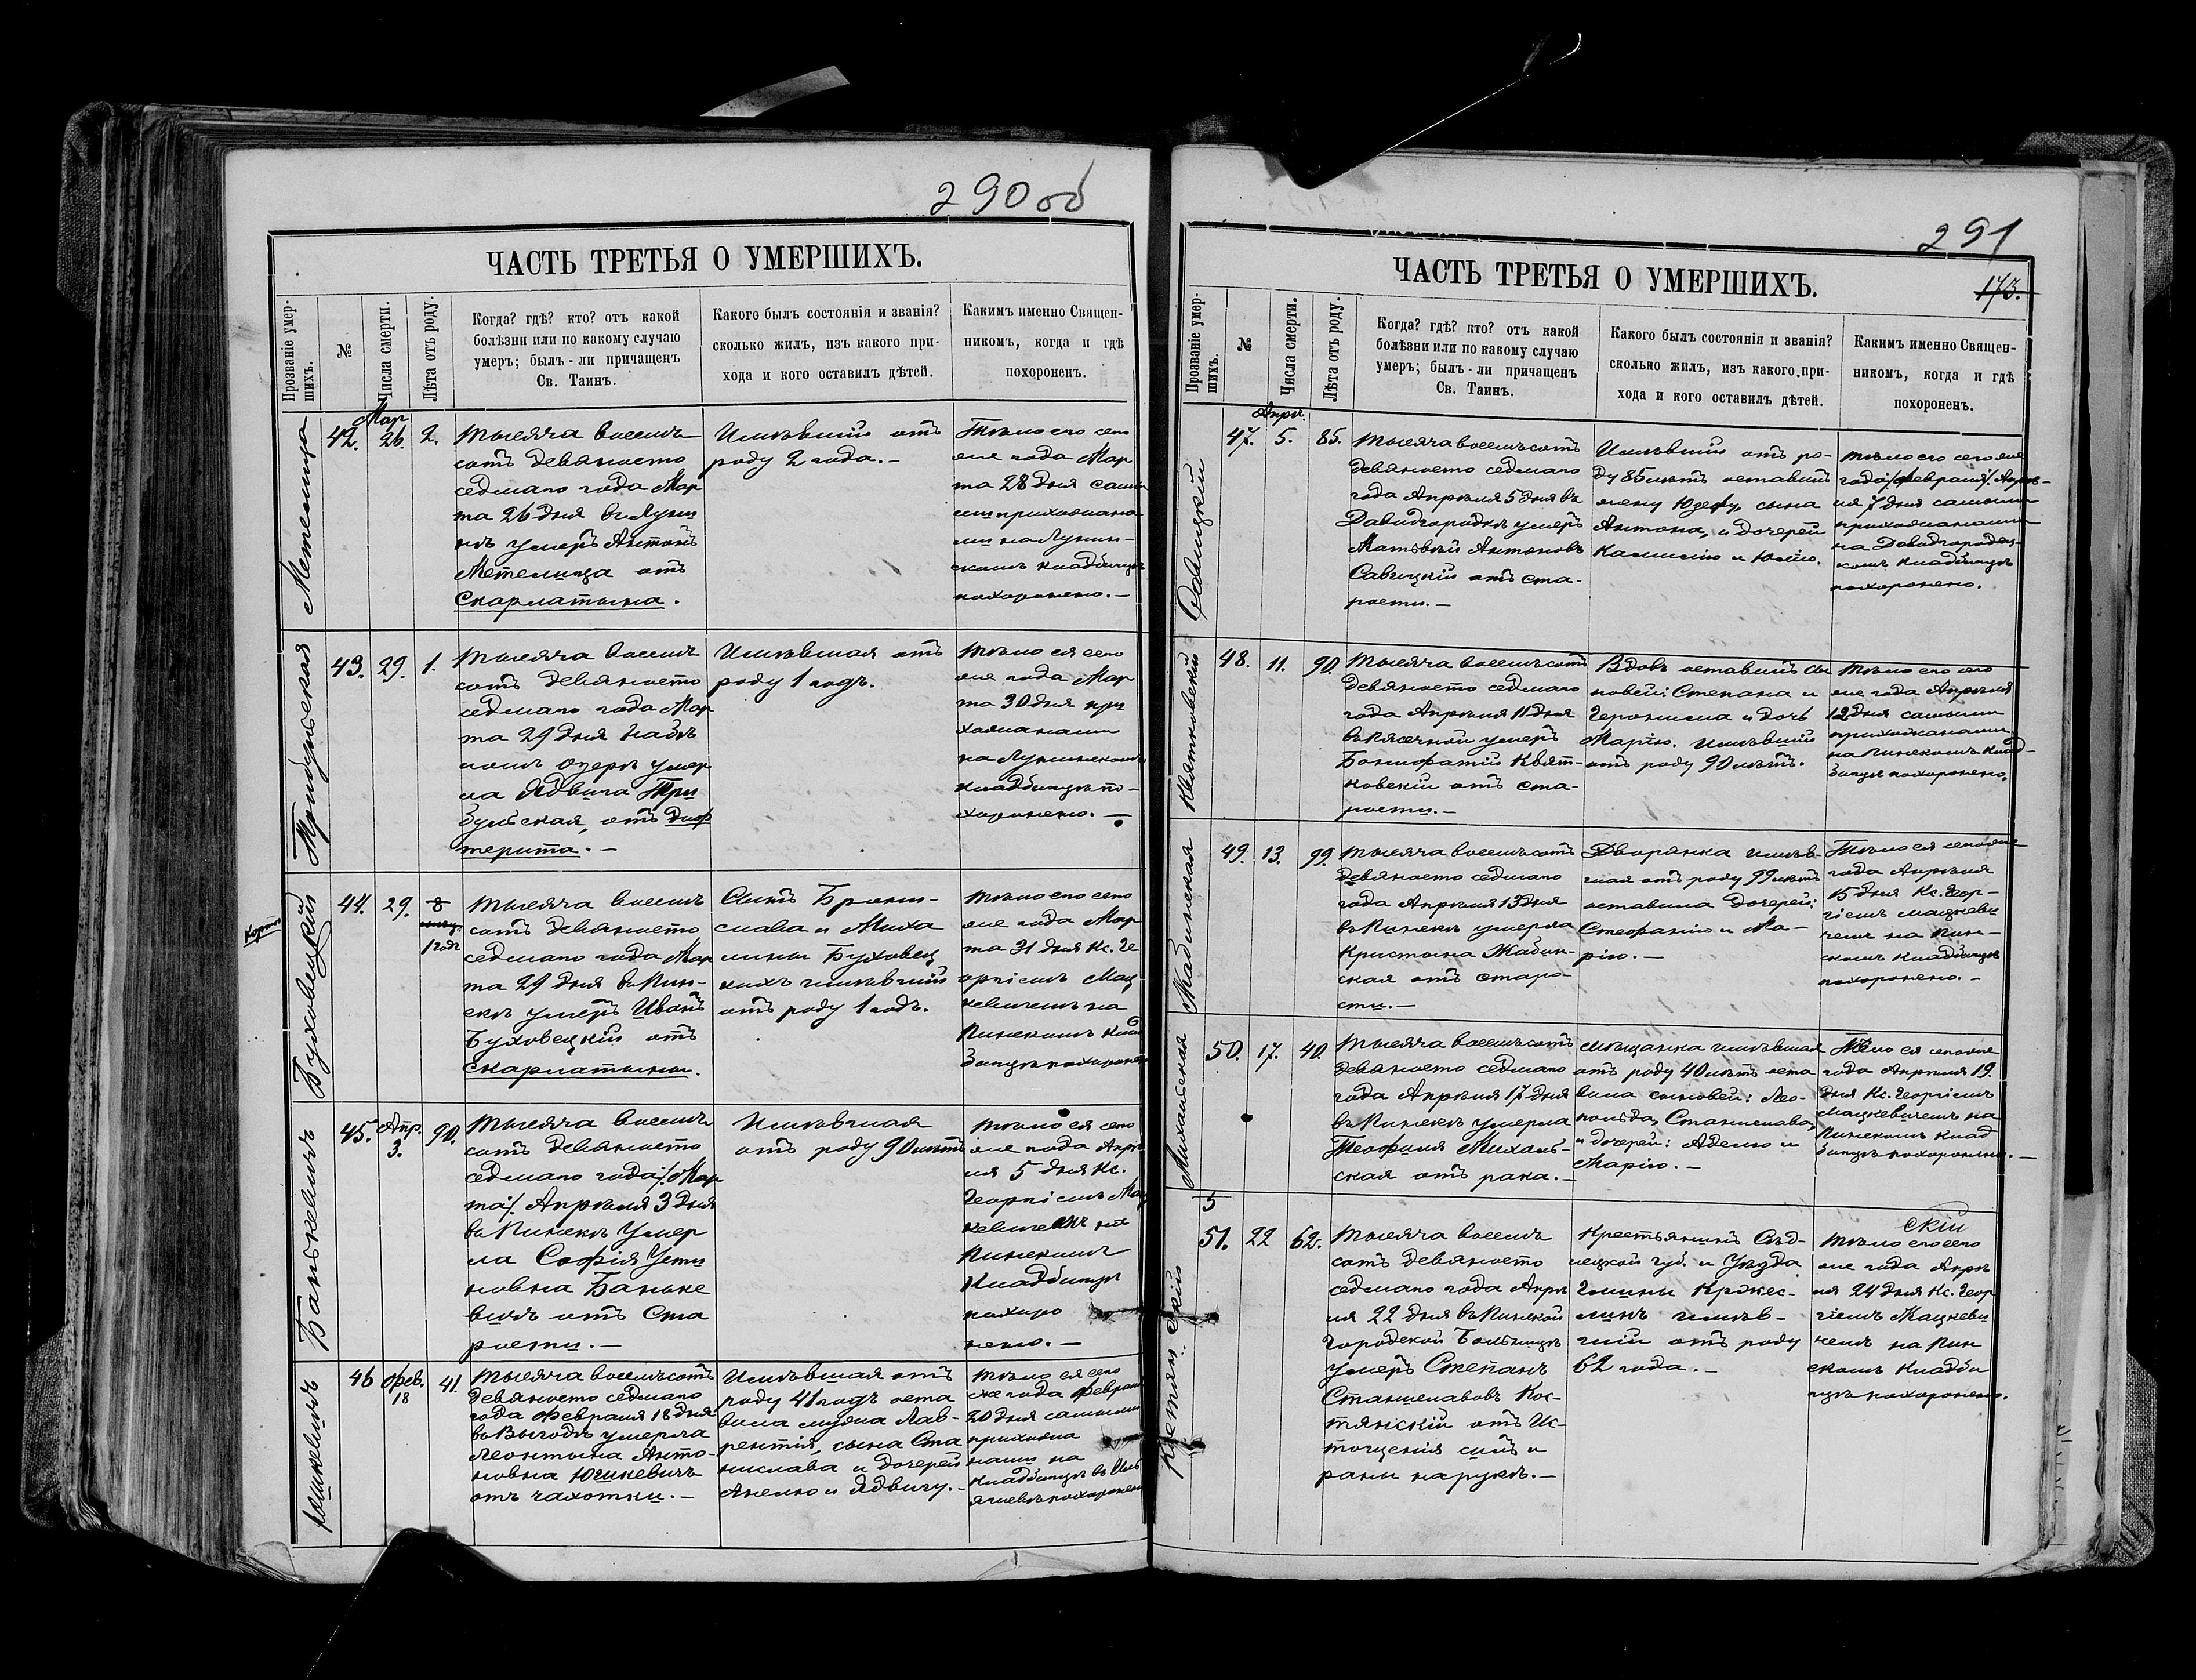 290 об
ЧАСТЬ ТРЕТЬЯ О УМЕРШИХЪ.
Прозваніе умер-
шихъ.
№
Числа смерти.
Лѣта отъ роду.
Когда? гдѣ? кто? отъ какой
болѣзни или по какому случаю
умеръ; былъ-ли причащенъ
Св. Таинъ.
Какого былъ состоянія и званія?
сколько жилъ, изъ какого при-
хода и кого оставилъ дѣтей.
Какимъ именно Священ-
никомъ, когда и гдѣ
похороненъ.
Метелица
42.
Мар
26.
2.
Тысяча восемь
сотъ девяносто
седмаго года Мар
та 26 дня въ Луни
нѣ умеръ Антонъ
Метелица отъ
Скарлатына.
Имѣвшій отъ
роду 2 года.—
Тѣло его сего
же года Мар
та 28 дня сами
ми прихожана
ми на Лунин-
скомъ кладбищѣ
похоронено.—
Трибульская
43.
29.
1.
Тысяча восемь
сотъ девяносто
седмаго года Мар
та 29 дня
номъ озерѣ умер
ла Ядвига Три
бульская, отъ диф
терита.—
Имѣвшая отъ
роду 1 годъ.
Тѣло ея сего
же года Мар
та 30 дня при
хожанами
на Лунинскомъ
кладбищѣ по-
хоронено.—
Буховецкій
44.
29.
8
1 годъ
Тысяча восемь
сотъ девяносто
седмаго года Мар
та 29 дня въ Пин-
скѣ умеръ Иванъ
Буховецкій отъ
скарлатыны.
Сынъ Брони-
слава и Миха
лины Буховец
кихъ имѣвшій
отъ роду 1 годъ.
Тѣло его сего
же года Мар
та 31 дня Кс. Ге
оргіемъ Мац
кевичемъ на
Пинскомъ клад
бищѣ похоронено
Банькевичъ
45.
Апр.
3.
90.
Тысяча восемь
сотъ девяносто
седмаго года /:Мар
та:/ Апрѣля 3 дня
въ Пинскѣ умер
ла Софія Усти
новна Баньке
вичъ отъ Ста
рости.—
Имѣвшая
отъ роду 90 лѣтъ
Тѣло ея сего
же года Апрѣ
ля 5 дня Кс.
Георгіемъ Мац
кевичемъ на
Пинскомъ
кладбищѣ
похоро
нено.—
Юшкевичъ
46
Фев.
18
41.
Тысяча восемьсотъ
девяносто седмаго
года Февраля 18 дня
въ Выгодѣ умерла
Леонтына Анто-
новна Юшкевичъ
отъ чахотки.—
Имѣвшая отъ
роду 41 годъ оста
вила мужа Лав-
рентія, сына Ста
нислава и дочерей
Анелю и Ядвигу.—
Тѣло ея сего
же года Февраля
20 дня самыми
прихожа
нами на
кладбищѣ въ
похоронено
291
ЧАСТЬ ТРЕТЬЯ О УМЕРШИХЪ.
173.
Прозваніе умер-
шихъ.
№
Числа смерти.
Лѣта отъ роду.
Когда? гдѣ? кто? отъ какой
болѣзни или по какому случаю
умеръ; былъ-ли причащенъ
Св. Таинъ.
Какого былъ состоянія и званія?
сколько жилъ, изъ какого при-
хода и кого оставилъ дѣтей.
Какимъ именно Священ-
никомъ, когда и гдѣ
похороненъ.
Савицкій
47.
Апрл.
5.
85.
Тысяча восемьсотъ
девяносто седмаго
года Апрѣля 5 дня въ
Давидгородкѣ умеръ
Матвѣй Антоновъ
Савицкій отъ ста-
рости.—
Имѣвшій отъ ро-
ду 85 лѣтъ оставилъ
жену Юзефу, сына
Антона, и дочерей
Камилію и Юлію.
Тѣло его сего же
года /:Февраля:/ Апрѣ-
ля 7 дня самыми
прихожанами
на Давидгородец-
комъ кладбищѣ
похоронено.
Квятковскій
48.
11.
90.
Тысяча восемьсотъ
девяносто седмаго
года Апрѣля 11 дня
въ Пясечной умеръ
Бонифатій Квят-
ковскій отъ ста-
рости.—
Вдовъ оставилъ сы
новей: Степана и
Геронима и дочь
Марію. Имѣвшій
отъ роду 90 лѣтъ.
Тѣло его сего
же года Апрѣля
12 дня самыми
прихожанами
на Пинскомъ клад-
бищѣ похоронено.
Жабинская
49.
13.
99.
Тысяча восемьсотъ
девяносто седмаго
года Апрѣля 13 дня
въ Пинскѣ умерла
Кристына Жабин-
ская отъ старо-
сти.—
Дворянка имѣв-
шая отъ роду 99 лѣтъ
оставила дочерей:
Стефанію и Ма-
рію.—
Тѣло ея сего же
года Апрѣля
15 дня Кс. Геор-
гіемъ Мацкеви
чемъ на Пин-
скомъ кладбищѣ
похоронено.—
Михальская
50.
17.
40.
Тысяча восемьсотъ
девяносто седмаго
года Апрѣля 17 дня
въ Пинскѣ умерла
Теофиля Михаль-
ская отъ рака.—
Мѣщанка имѣвшая
отъ роду 40 лѣтъ оста
вила сыновей: Лео-
польда, Станислава,
и дочерей: Аделю и
Марію.—
Тѣло ея сего же
года Апрѣля 19.
дня Кс. Георгіемъ
Мацкевичемъ на
Пинскомъ клад
бищѣ похоронено.—
5
51.
22
62.
Тысяча восемь
сотъ девяносто
седмаго года Апрѣ
ля 22 дня въ Пинской
городской больницѣ
умеръ Степанъ
Станиславовъ Кос-
тянскій отъ Ис-
тощенія силъ и
раны на рукѣ.—
Крестьянинъ Сѣд-
лецкой губ. и Уѣзда
Гмины
имѣв-
шій отъ роду
62 года.—
скій
Тѣло его сего
же года Апрѣ
ля 24 дня Кс. Геор
гіемъ Мацкеви
чемъ на Пин
скомъ кладби
щѣ похоронено.